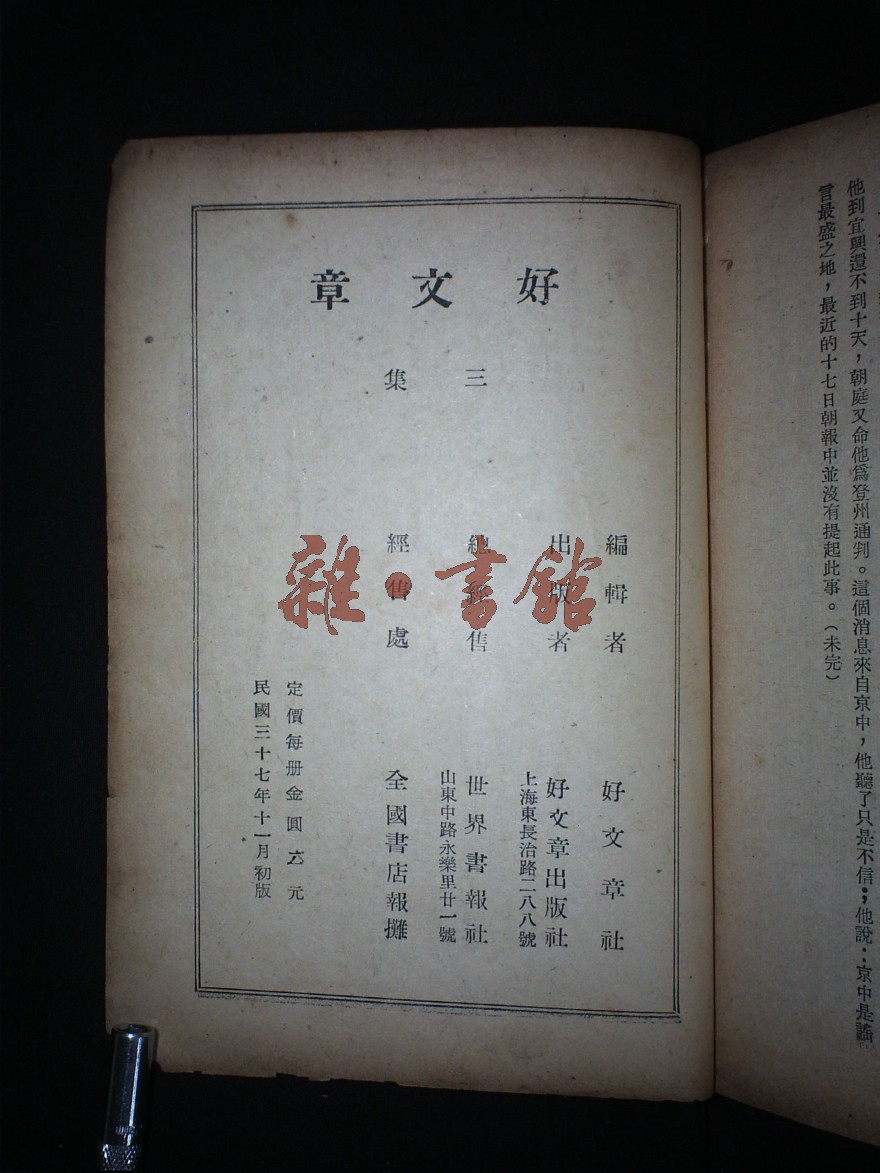 好文章
三集
編輯者 好文章社
出版者 好文章出版社
上海東長治路二八八號
總經售 世界書報社
山東中路永樂里廿一號
經售處 全國書店報攤
定價每册金圓六元
民國三十七年十一月初版
雜·書館
他到宜興還不到十天，朝庭又命他爲登州通判。這個消息來自京中，他聽了只是不信；他說：京中是謠
言最盛之地，最近的十七日朝報中並沒有提起此事。（未完）